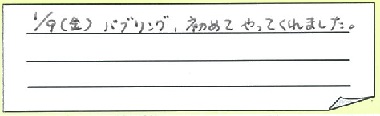 1/9(金) バブリング、初めて やってくれました。